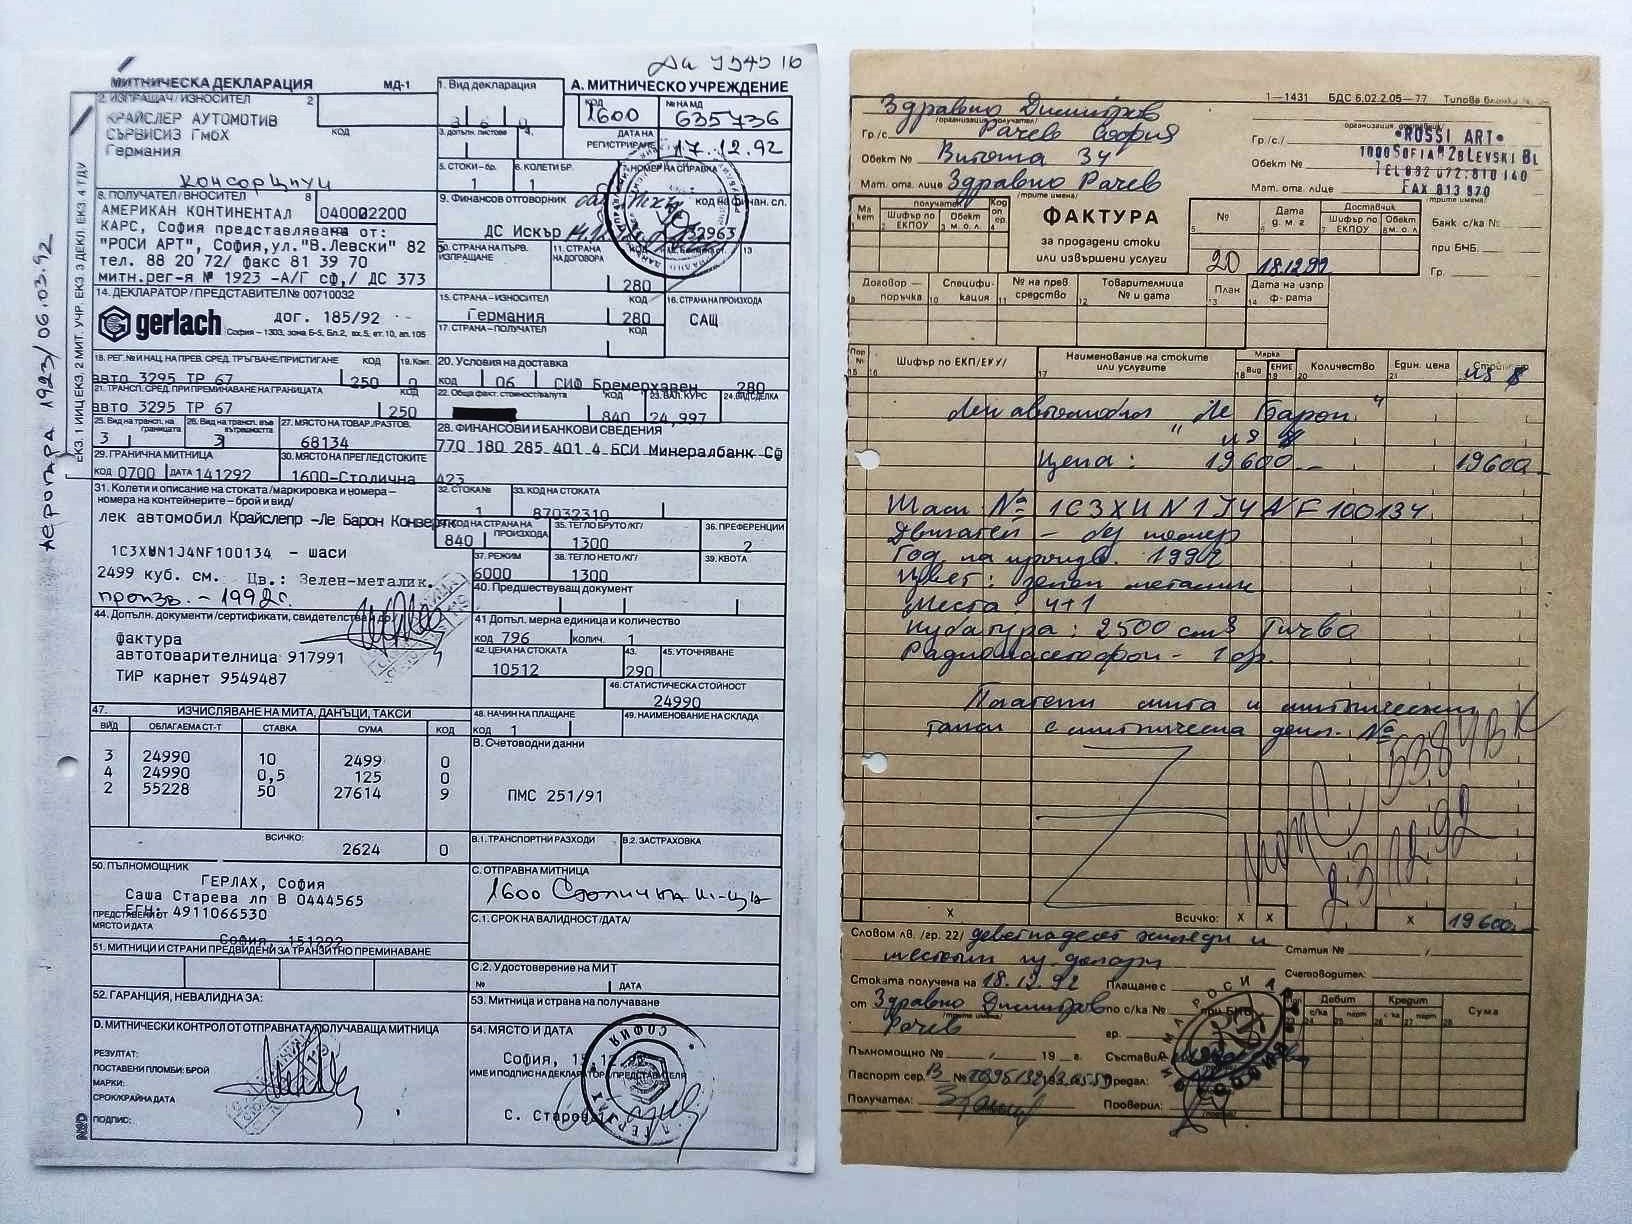 МИТНИЧЕСКА ДЕКЛАРАЦИЯ МД-1
1. Вид декларация
А. МИТНИЧЕСКО УЧРЕЖДЕНИЕ
2. ИЗПРАЩАЧ/ИЗНОСИТЕЛ 2
КРАЙСЛЕР АУТОМОТИВ
СЪРВИСИЗ ГмбХ
Германия
КОД
КОНСОРЦИУЦ
КОД № НА МД
1600 635736
ДАТА НА
РЕГИСТРИРАНЕ 17.12.92
5. СТОКИ-бр. 6. КОЛЕТИ БР. 7. НОМЕР НА СПРАВКА
1 1
8. ПОЛУЧАТЕЛ/ВНОСИТЕЛ 8
АМЕРИКАН КОНТИНЕНТАЛ 040002200
КАРС, София представлявана от:
"РОСИ АРТ", София,ул."В.Левски" 82
тел. 88 20 72/ факс 81 39 70
митн.рег-я № 1923 -А/Г сф,/ ДС 373
9. Финансов отговорник код на финан. сл.
ДС Искър 32963
10. СТРАНА НА ПЪРВ. ИЗПРАЩАНЕ
11. СТРАНА НА ДОГОВОРА
280
14. ДЕКЛАРАТОР/ПРЕДСТАВИТЕЛ № 00710032
gerlach дог. 185/92
София – 1303, зона Б-5, Бл.2, вх.5, ет.10, ап.105
15. СТРАНА – ИЗНОСИТЕЛ КОД
Германия 280
16. СТРАНА НА ПРОИЗХОДА
САЩ
17. СТРАНА – ПОЛУЧАТЕЛ КОД
18. РЕГ. № И НАЦ. НА ПРЕВ. СРЕД. ТРЪГВАНЕ/ПРИСТИГАНЕ КОД 19. Конт.
авто 3295 ТР 67 250 0
20. Условия на доставка
КОД 06 СИФ Бремерхавен 280
21. ТРАНСП. СРЕД. ПРИ ПРЕМИНАВАНЕ НА ГРАНИЦАТА
авто 3295 ТР 67 250
22. Обща факт. стойност/валута 23. ВАЛ. КУРС 24. ВИД СДЕЛКА
840 24,997
25. Вид на трансп. на границата 26. Вид на трансп. във вътрешността 27. МЯСТО НА ТОВАР./РАЗТОВ.
3 3 68134
28. ФИНАНСОВИ И БАНКОВИ СВЕДЕНИЯ
770 180 285 401 4 БСИ Минералбанк Сф
423
29. ГРАНИЧНА МИТНИЦА 30. МЯСТО НА ПРЕГЛЕД СТОКИТЕ
КОД 0700 ДАТА 141292 1600-Столична
31. Колети и описание на стоката /маркировка и номера –
номера на контейнерите – брой и вид/
лек автомобил Крайслепр -Ле Барон Конверти
1C3XUN1J4NF100134 - шаси
2499 куб. см. Цв.: Зелен-металик.
произв. - 1992г.
32. СТОКА № 33. КОД НА СТОКАТА
1 87032310
КОД НА СТРАНА НА ПРОИЗХОДА 35. ТЕГЛО БРУТО /КГ/ 36. ПРЕФЕРЕНЦИИ
840 1300 2
37. РЕЖИМ 38. ТЕГЛО НЕТО /КГ/ 39. КВОТА
6000 1300
40. Предшествуващ документ
44. Допълн. документи /сертификати, свидетелства и др./
фактура
автотоварителница 917991
ТИР карнет 9549487
41 Допъл. мерна единица и количество
код 796 колич. 1
42. ЦЕНА НА СТОКАТА 43. 45. УТОЧНЯВАНЕ
10512 290
46. СТАТИСТИЧЕСКА СТОЙНОСТ
24990
47. ИЗЧИСЛЯВАНЕ НА МИТА, ДАНЪЦИ, ТАКСИ
ВИД ОБЛАГАЕМА СТ-Т СТАВКА СУМА КОД
3 24990 10 2499 0
4 24990 0,5 125 0
2 55228 50 27614 9
ВСИЧКО:
2624 0
48. НАЧИН НА ПЛАЩАНЕ 49. НАИМЕНОВАНИЕ НА СКЛАДА
КОД 1
В. Счетоводни данни
ПМС 251/91
В.1. ТРАНСПОРТНИ РАЗХОДИ В.2. ЗАСТРАХОВКА
50. ПЪЛНОМОЩНИК
ГЕРЛАХ, София
Саша Старева лп В 0444565
ЕГН: 4911066530
ПРЕДСТАВЕН ОТ
МЯСТО И ДАТА
София, 151292
С. ОТПРАВНА МИТНИЦА
1600 Столична м-ца
С.1. СРОК НА ВАЛИДНОСТ /ДАТА/
51. МИТНИЦИ И СТРАНИ ПРЕДВИДЕНИ ЗА ТРАНЗИТНО ПРЕМИНАВАНЕ
С.2. Удостоверение на МИТ
№ ДАТА
52. ГАРАНЦИЯ, НЕВАЛИДНА ЗА:
53. Митница и страна на получаване
D. МИТНИЧЕСКИ КОНТРОЛ ОТ ОТПРАВНАТА/ПОЛУЧАВАЩА МИТНИЦА
РЕЗУЛТАТ:
ПОСТАВЕНИ ПЛОМБИ: БРОЙ
МАРКИ:
СРОК/КРАЙНА ДАТА
ПОДПИС:
54. МЯСТО И ДАТА
София, 15.12.92
ИМЕ И ПОДПИС НА ДЕКЛАРАТОРА/ПРЕДСТАВИТЕЛЯ
С. Старева
АЕРОГАРА 1923/06.03.92
1–1431 БДС 6.02.2.05–77 Типова бланка №
Здравко Димитров
/организация получател/
Гр./с. Рачев София
Обект № Витоша 34
Мат. отг. лице Здравко Рачев
/трите имена/
организация доставчик/
Гр./с.
•ROSSI ART•
1000 SOFIA
TEL 882 072; 810 140
FAX 813 970
Обект №
Мат. отг. лице
/трите имена/
получател
Шифър по ЕКПОУ Обект м. о. л. Код оп. ер.
ФАКТУРА
за продадени стоки
или извършени услуги
№ Дата д. м. г.
20 18.12.92
Доставчик
Шифър по ЕКПОУ Обект м. о. л.
Банк. с/ка №
при БНБ.
Гр.
Договор – поръчка Специфи- кация № на прев средство Товарителница № и дата План Дата на изпр ф-рата
Шифър по ЕКП/ЕРУ/ Наименование на стоките или услугите Марка Вид Количество Един. цена
Лек автомобил "Ле Барон"
Цена: 19600 19600
Шаси № 1C3XUN1J4NF100134
Двигател – без номер
Год. на произв. 1992
Цвят: зелен металик
Места: 4+1
Кубатура: 2500 cm3
Радиокасетофон – 1 бр.
Платени мита и митнически
такси с митническа декл. №
23.12.92
Х Всичко: Х Х Х 19600
Словом лв. /гр. 22/ деветнадесет хиляди и
шестстотин щ. долари
Статия №
Стоката получена на 18.12.92 Плащане с
Счетоводител:
от Здравко Димитров по с/ка № при БНБ
/трите имена/
Рачев гр.
Дебит Кредит Сума
с/ка парт с/ка парт
Пълномощно № 19 г. Съставил:
Паспорт сер. В № Предал:
Получател: Проверил: